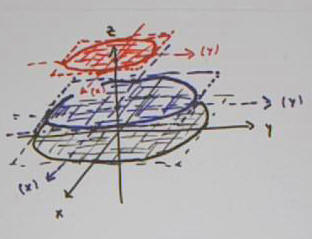 z
(Y)
(X)
(Y)
y
(X)
x